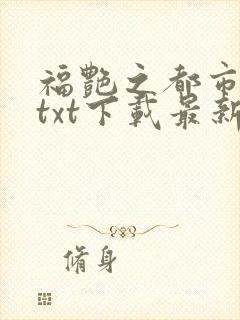 福艷之都市
txt下載最新
脩身